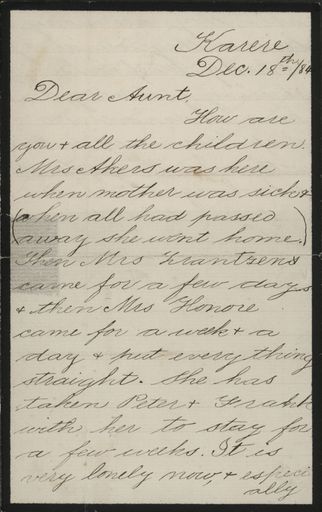 Karere
Dec. 18th/84
Dear Aunt,
How are
you & all the children.
Mrs Akers was here
when mother was sick &
(when all had passed
away she went home.)
Then Mrs Frantzen
came for a few days
& then Mrs Honore
came for a week & a
day & put everything
straight. She has
taken Peter & Frank
with her to stay for
a few weeks. It is
very lonely now, & especi
ally